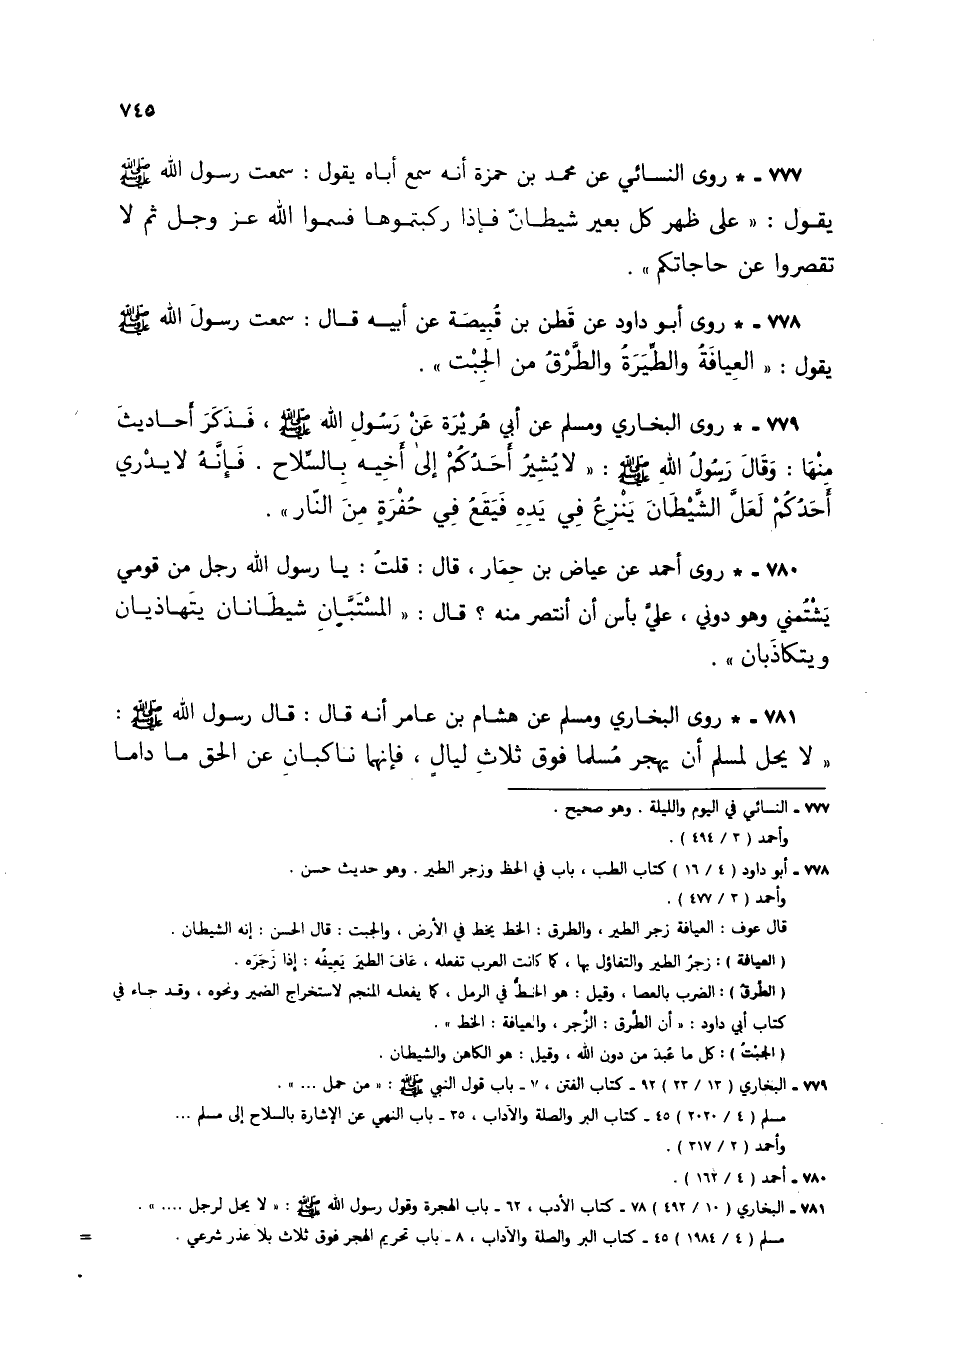 ٧٤٥
٧٧٧ - * روى النسائي عن محمد بن حمزة أنه سمع أباه يقول : سمعت رسول الله ﷺ
يقول : « على ظهر كل بعير شيطانٌ فإذا ركبتموها فسموا الله عز وجل ثم لا
تقصروا عن حاجاتكم » .
٧٧٨ - * روى أبو داود عن قَطَن بن قُبيصَة عن أبيه قال : سمعت رسولَ الله ﷺ
يقول : « العِيافَةُ والطِّيَرَةُ والطَّرْقُ من الجِبْت » .
٧٧٩ - * روى البخاري ومسلم عن أبي هُرَيْرَة عَنْ رَسُولِ الله ﷺ ، فَذَكَرَ أَحاديثَ
مِنْهَا : وَقَالَ رَسُولُ اللهِ ﷺ : « لا يُشيرُ أَحَدُكُمْ إلَى أَخِيهِ بِالسِّلاح . فَإنَّهُ لا يَدْري
أَحَدُكُمْ لَعَلَّ الشَّيْطَانَ يَنْزِعُ فِي يَدِهِ فَيَقَعُ فِي حُفْرَةٍ مِنَ النَّار » .
٧٨٠ - * روى أحمد عن عياض بن حِمَار ، قال : قلتُ : يا رسول الله رجل من قومي
يَشْتُمني وهو دوني ، عليَّ بأس أن أنتصر منه ؟ قال : « المُسْتَبَّانِ شيطَانان يتهاذيان
ويتكاذَبان » .
٧٨١ - * روى البخاري ومسلم عن هشام بن عامر أنه قال : قال رسول الله ﷺ :
« لا يحل لمسلم أن يهجر مُسلما فوق ثلاثِ ليالٍ ، فإنهما ناكبانِ عن الحق ما داما
٧٧٧ - النسائي في اليوم والليلة . وهو صحيح .
وأحمد ( ٣ / ٤٩٤ ) .
٧٧٨ - أبو داود ( ٤ / ١٦ ) كتاب الطب ، باب في الخط وزجر الطير . وهو حديث حسن .
وأحمد ( ٣ / ٤٧٧ ) .
قال عوف : العيافة زجر الطير ، والطرق : الخط يخط في الأرض ، والجبت : قال الحسن : إنه الشيطان .
( العيافة ) : زجرُ الطير والتفاؤل بها ، كما كانت العرب تفعله ، عَافَ الطيرَ يَعيفُه : إذا زَجَرَه .
( الطَّرقُ ) : الضرب بالعصا ، وقيل : هو الخطُّ في الرمل ، كما يفعله المنجم لاستخراج الضمير ونحوه ، وقد جاء في
كتاب أبي داود : « أن الطَّرق : الزَّجر ، والعيافة : الخط » .
( الجبْتُ ) : كل ما عُبدَ من دون الله ، وقيل : هو الكاهن والشيطان .
٧٧٩ - البخاري ( ١٣ / ٢٣ ) ٩٢ - كتاب الفتن ، ٧ - باب قول النبي ﷺ : « من حمل ... » .
مسلم ( ٤ / ٢٠٢٠ ) ٤٥ - كتاب البر والصلة والآداب ، ٣٥ - باب النهي عن الإشارة بالسلاح إلى مسلم ...
وأحمد ( ٢ / ٣١٧ ) .
٧٨٠ - أحمد ( ٤ / ١٦٢ ) .
٧٨١ - البخاري ( ١٠ / ٤٩٢ ) ٧٨ - كتاب الأدب ، ٦٢ - باب الهجرة وقول رسول الله ﷺ : « لا يحل لرجل .... » .
مسلم ( ٤ / ١٩٨٤ ) ٤٥ - كتاب البر والصلة والآداب ، ٨ - باب تحريم الهجر فوق ثلاث بلا عذر شرعي . =